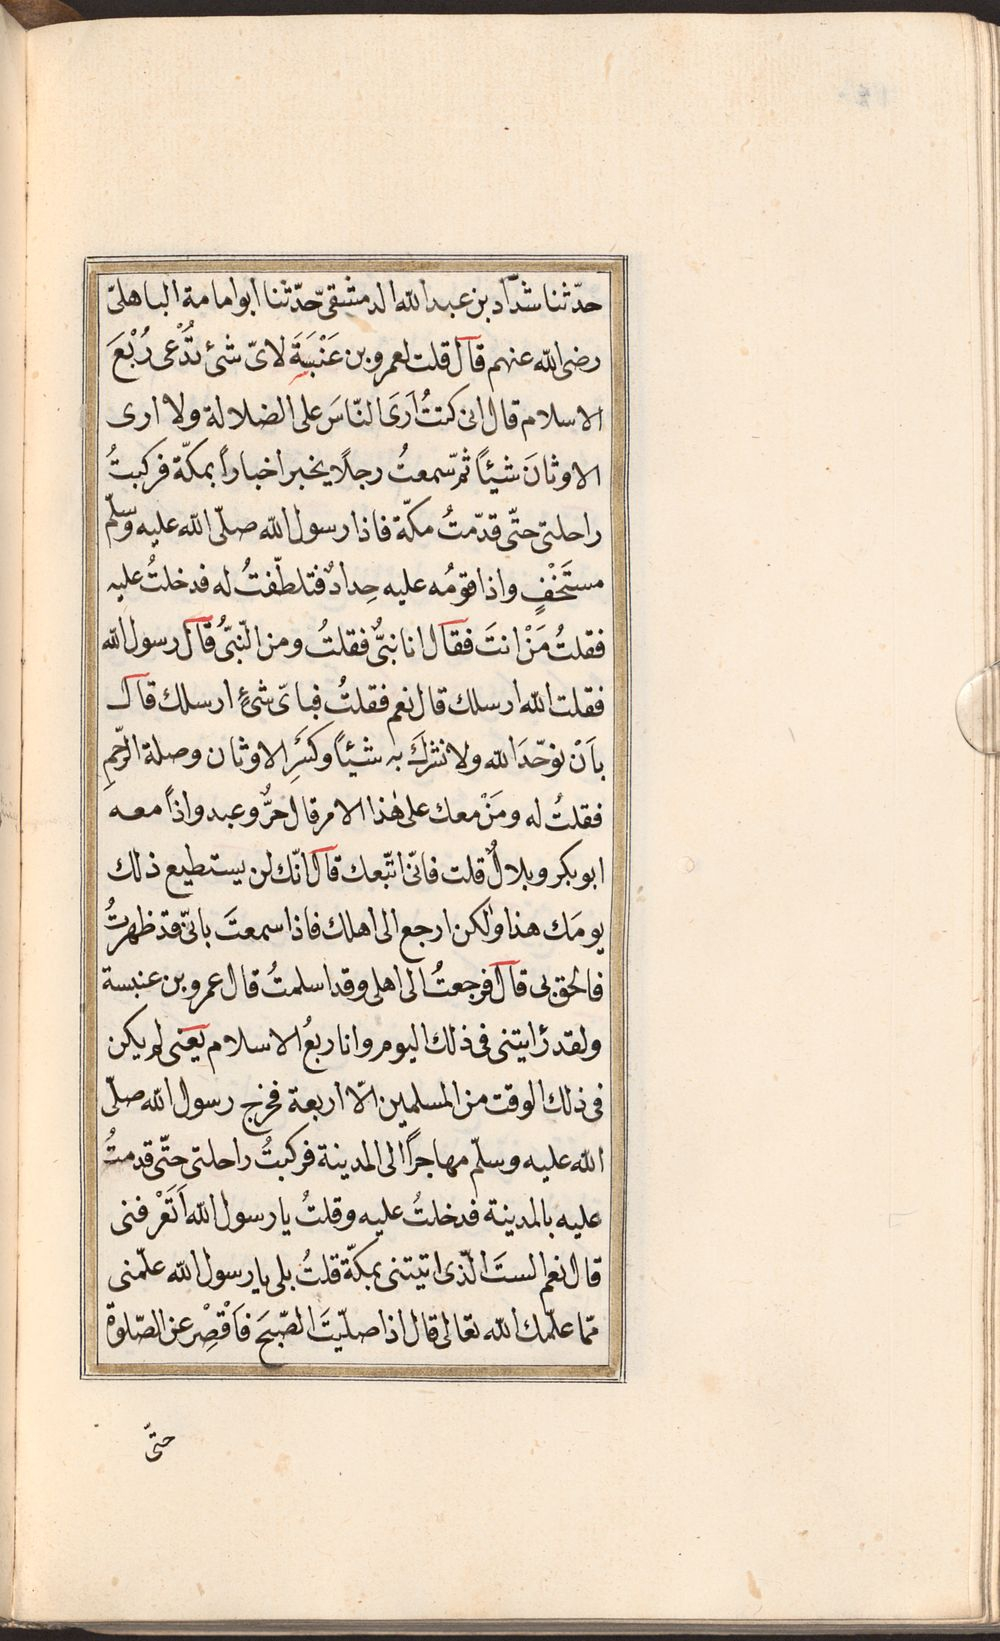 حدّثنا شدّاد بن عبد الله الدمشقىّ حدّثنا ابو امامة الباهلىّ
رضى الله عنهم قال قلت لعمرو بن عَنْبَسَةَ لاىّ شئ تُدْعى رُبْعَ
الاسلام قال انى كنتُ اَرَى النّاسَ على الضلالة ولا ارى
الاوثانَ شيئاً ثمّ سمعتُ رجلًا يخبر اخباراً بمكّة فركبتُ
راحلتى حتّى قدّمتُ مكّة فاذا رسول الله صلّى الله عليه وسلّم
مستَخْفٍ واذا قومُه عليه حِدادٌ فتلطّفتُ له فدخلتُ عليه
فقلتُ مَنْ انتَ فقال انا نبىٌّ فقلتُ ومن النّبىُّ قال رسول الله
فقلت الله ارسلك قال نعم فقلتُ فباىّ شئٍ ارسلك قال
باَنْ نوحّدَ الله ولا نشركَ به شيئاً وكسَرِ الاوثان وصلة الرّحِمِ
فقلتُ له ومَنْ معك على هٰذا الامر قال حرٌّ وعبد واذاً معه
ابو بكر وبلالٌ قلت فانّى اتّبعك قال انّك لن يستطيع ذلك
يومَك هذا ولٰكن ارجع الى اهلك فاذا سمعتَ بانّى قد ظهرتُ
فالحق بى قال فرجعتُ الى اهلى وقد اسلمتُ قال عمرو بن عنبسة
ولقد رُايتنى فى ذلك اليوم وانا ربعُ الاسلام يعنى لم يكن
فى ذلك الوقت من المسلمين الّا اربعة فخرج رسول الله صلّى
الله عليه وسلّم مهاجرًا الى المدينة فركبتُ راحلتى حتّى قدمتُ
عليه بالمدينة فدخلتُ عليه وقلتُ يا رسول الله اَتَعْرفنى
قال نعم الستَ الّذى اتيتنى بمكّة قلتُ بلى يا رسول الله علّمنى
ممّا علّمك الله تعالى قال اذا صلّيتَ الصّبحَ فاَقْصِرْ عن الصّلوة
حتّى